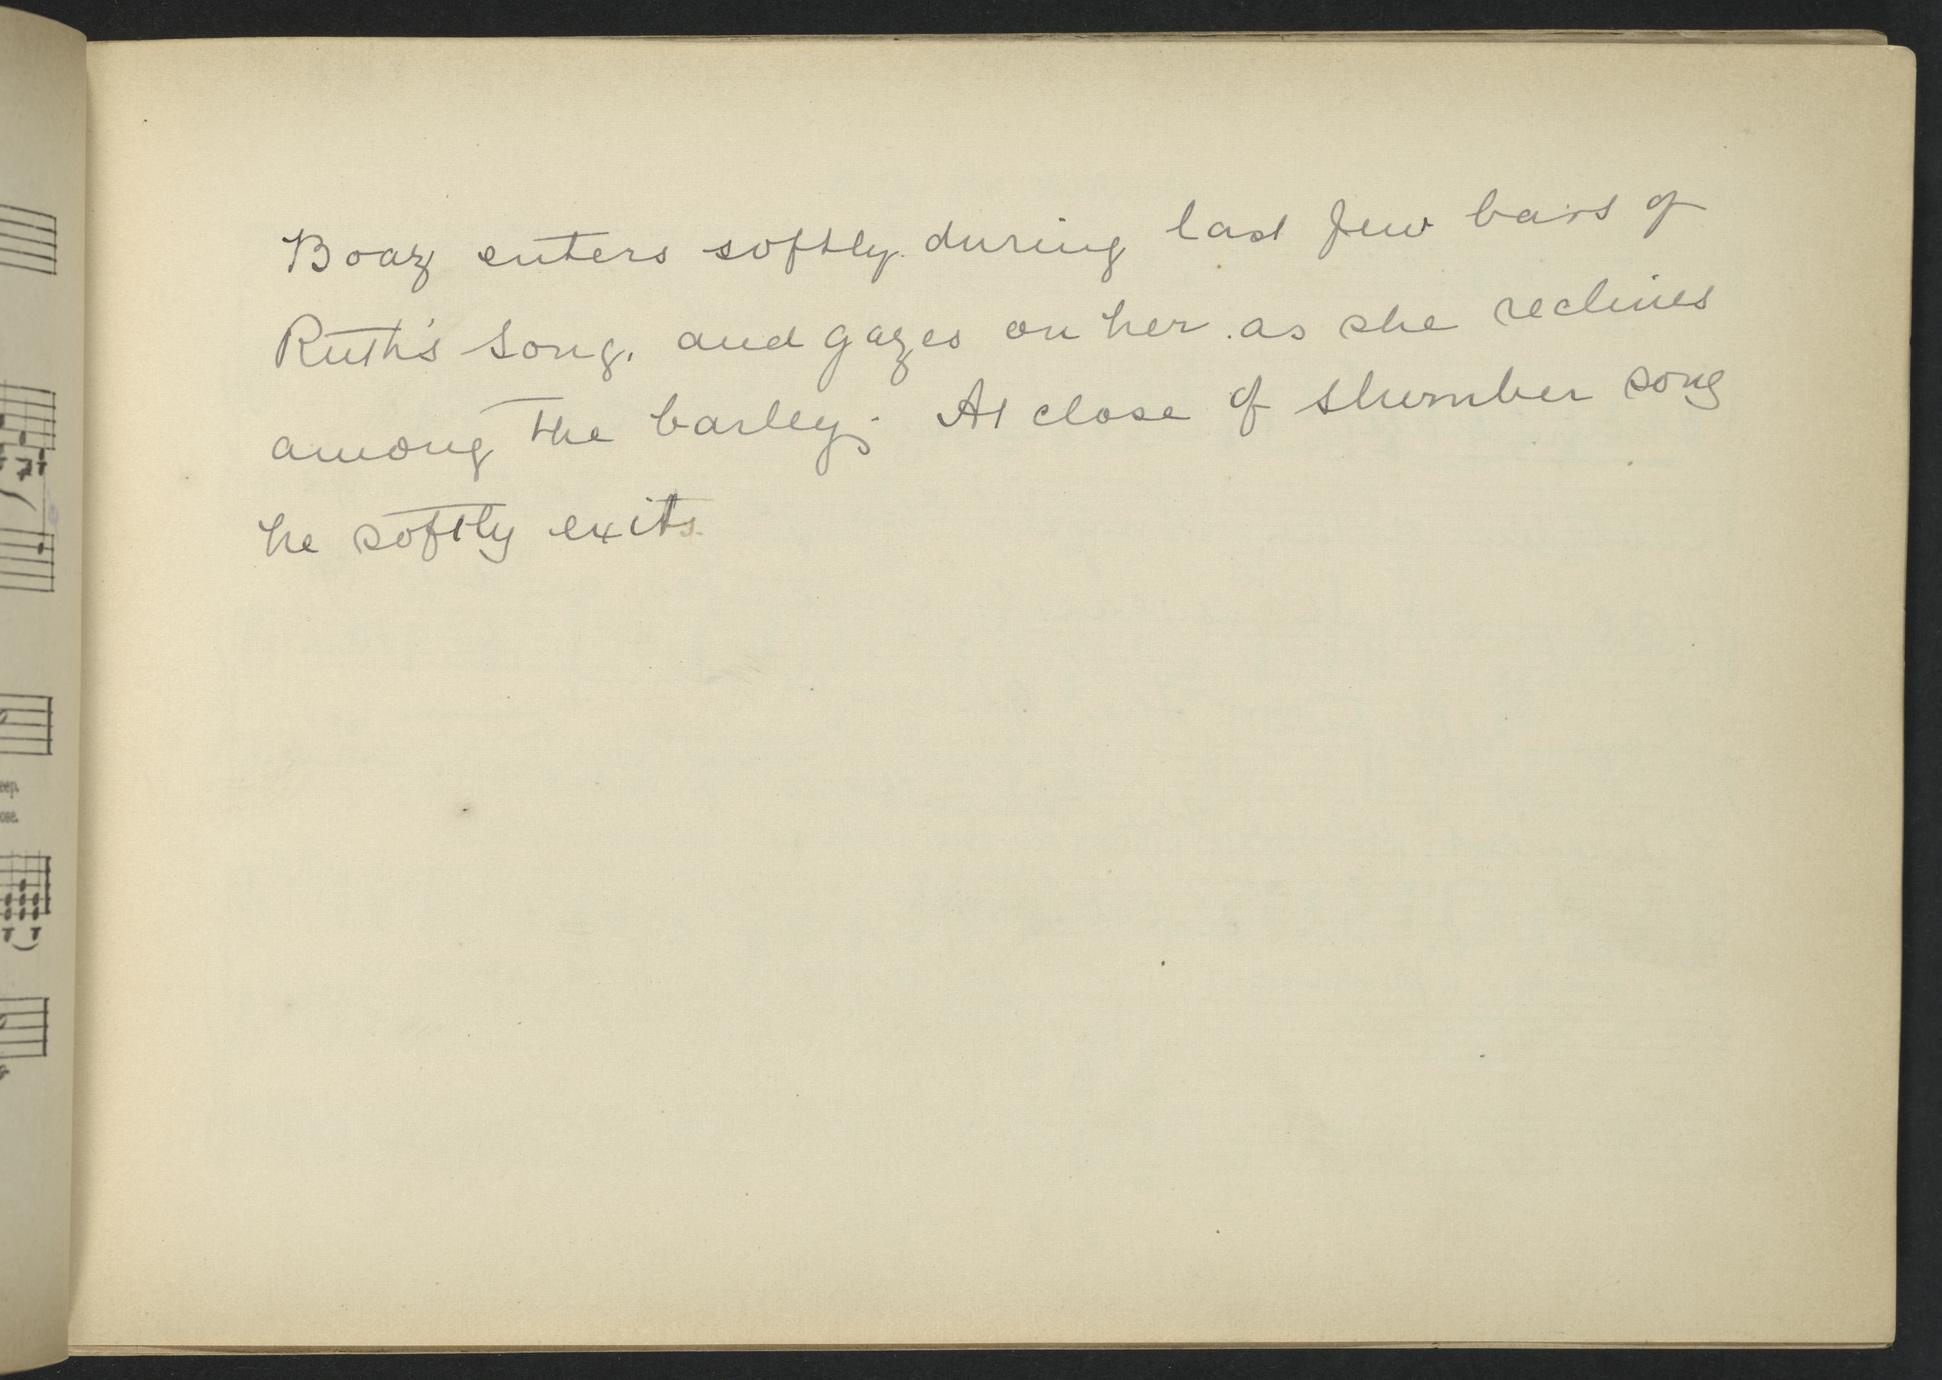 Boaz enters softly during last few bars of
Ruth's song, and gazes on her as she reclines
among the barley. At close of slumber song
he softly exits.
eep.
ose.